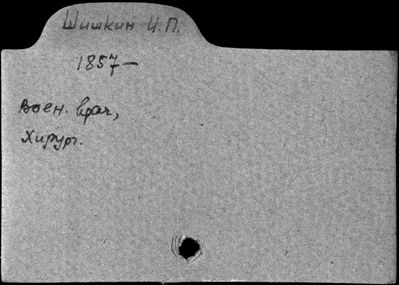 Шишкин И.П.
1857—
Воен. врач,
Хирург.